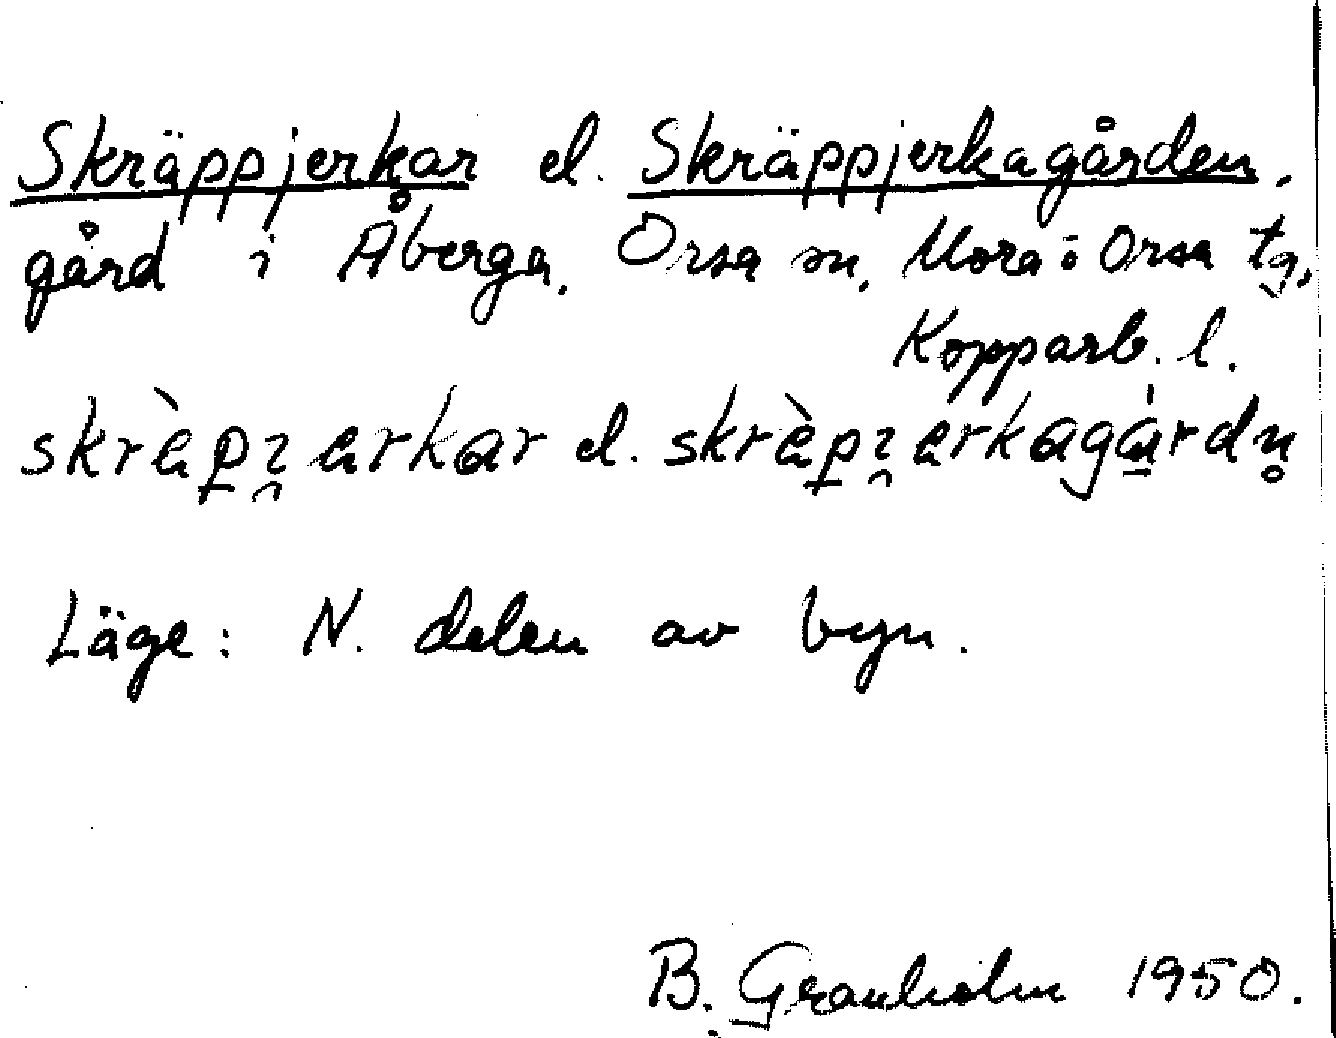 Skräppjerkar el. Skräppjerkagården.
gård i Åberga. Orsa sn, Mora o Orsa tg,
Kopparb. l.
skrèpı̯erkar el. skrèpı̯erkagárdn̥
Läge: N. delen av byn.
B. Granholm 1950.